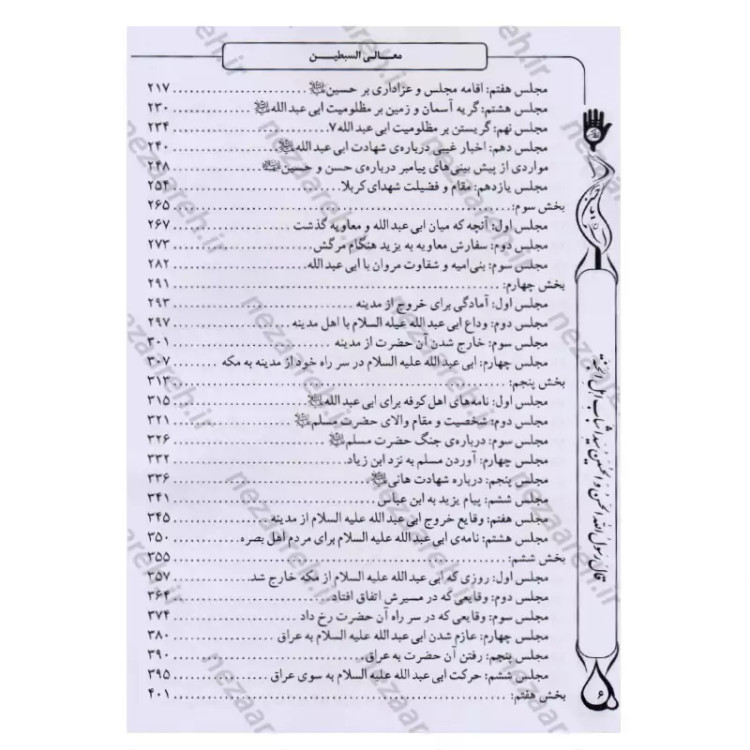 معـالـی السبطیـن
مجلس هفتم: اقامه مجلس و عزاداری بر حسین ﷺ ۲۱۷
مجلس هشتم: گریه آسمان و زمین بر مظلومیت ابی عبدالله ۲۳۰
مجلس نهم: گریستن بر مظلومیت ابی عبدالله۷ ۲۳۴
مجلس دهم: اخبار غیبی درباره‌ی شهادت ابی عبدالله ۲۴۰
مواردی از پیش بینی‌های پیامبر درباره‌ی حسن و حسین ۲۴۸
مجلس یازدهم: مقام و فضیلت شهدای کربلا ۲۵۴
بخش سوم: ۲۶۵
مجلس اول: آنچه که میان ابی عبدالله و معاویه گذشت ۲۶۷
مجلس دوم: سفارش معاویه به یزید هنگام مرگش ۲۷۳
مجلس سوم: بنی‌امیه و شقاوت مروان با ابی عبدالله ۲۸۲
بخش چهارم: ۲۹۱
مجلس اول: آمادگی برای خروج از مدینه ۲۹۳
مجلس دوم: وداع ابی عبدالله عیله السلام با اهل مدینه ۲۹۷
مجلس سوم: خارج شدن آن حضرت از مدینه ۳۰۱
مجلس چهارم: ابی عبدالله علیه السلام در سر راه خود از مدینه به مکه ۳۰۷
بخش پنجم: ۳۱۳
مجلس اول: نامه‌های اهل کوفه برای ابی عبدالله ۳۱۵
مجلس دوم: شخصیت و مقام والای حضرت مسلم ۳۲۱
مجلس سوم: درباره‌ی جنگ حضرت مسلم ۳۲۶
مجلس چهارم: آوردن مسلم به نزد ابن زیاد ۳۳۲
مجلس پنجم: درباره شهادت هانی ۳۳۶
مجلس ششم: پیام یزید به ابن عباس ۳۴۱
مجلس هفتم: وقایع خروج ابی عبدالله علیه السلام از مدینه ۳۴۵
مجلس هشتم: نامه‌ی ابی عبدالله علیه السلام برای مردم اهل بصره ۳۵۰
بخش ششم: ۳۵۵
مجلس اول: روزی که ابی عبدالله علیه السلام از مکه خارج شد ۳۵۷
مجلس دوم: وقایعی که در مسیرش اتفاق افتاد ۳۶۴
مجلس سوم: وقایعی که در سر راه آن حضرت رخ داد ۳۷۴
مجلس چهارم: عازم شدن ابی عبدالله علیه السلام به عراق ۳۸۰
مجلس پنجم: رفتن آن حضرت به عراق ۳۹۰
مجلس ششم: حرکت ابی عبدالله علیه السلام به سوی عراق ۳۹۵
بخش هفتم: ۴۰۱
قال رسول الله الحسن و الحسین سیدا شباب اهل الجنه
۶
nezaareh.ir